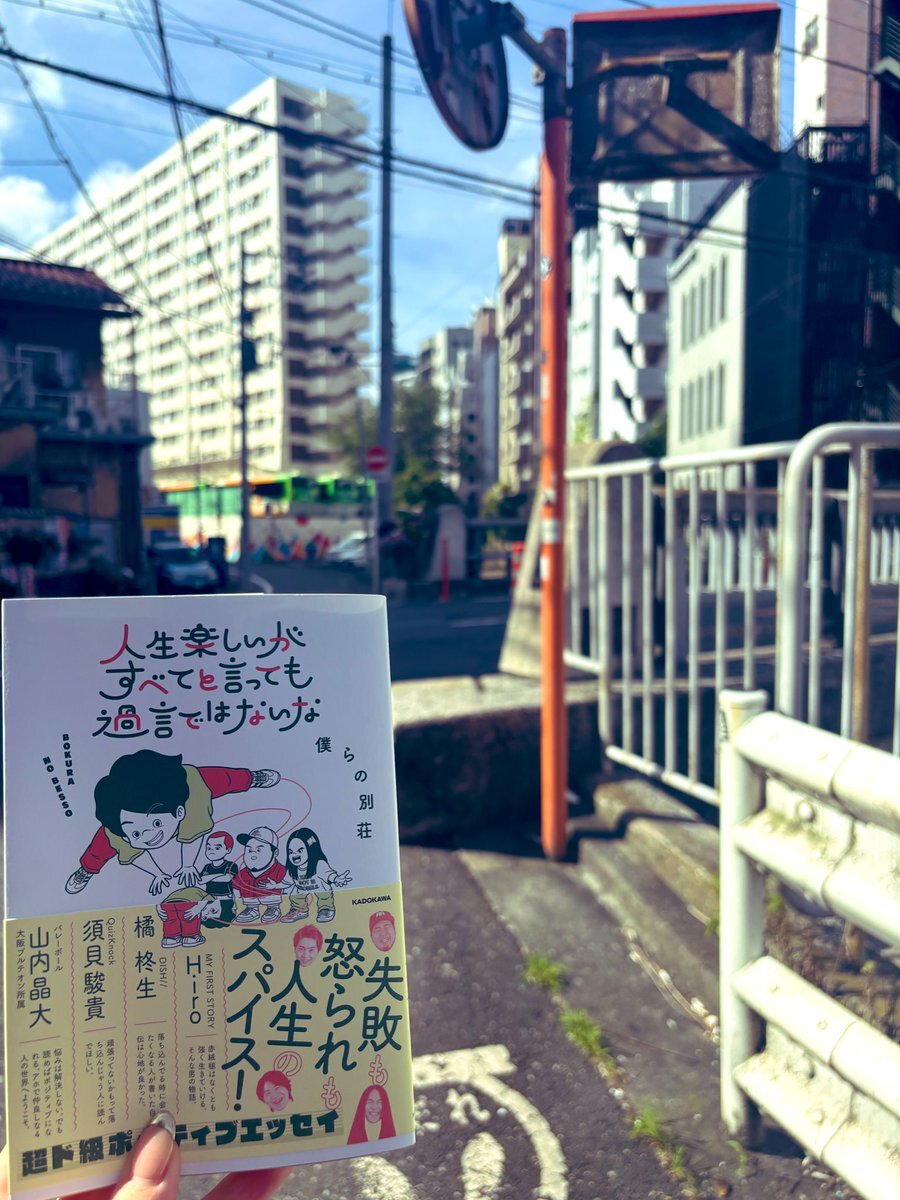 人生楽しいが
すべてと言っても
過言ではないな
BOKURA
NO BESSO
僕らの別荘
KADOKAWA
失敗も
怒られも
人生の
スパイス!
MY FIRST STORY
Hiro
赤絨毯はなくとも
強く生きていける。
そんな男の物語。
DISH//
橘 柊生
落ち込んでる時に会い
たくなる人が書いた自
伝は心地が良かった。
QuizKnock
須貝駿貴
頑張ってないかもって落
ち込んじゃう人に読ん
でほしい。
バレーボール
大阪ブルテオン所属
山内晶大
悩みは解決しない。でも
読めばポジティブにな
れる。アホで仲良しな4
人の世界へようこそ。
超ド級ポジティブエッセイ